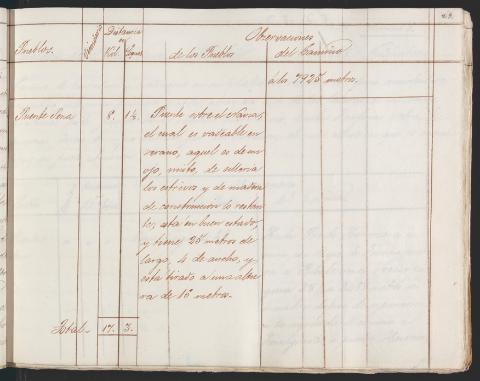 Observaciones
Pueblos. Distancia en Kil. Legua
de los Pueblos del Camino
á los 7925 metros.
Puente Pena 8. 1½ Puente sobre el
el cual es vadeable en
verano, aquel es de un
ojo, misto, de silleria
los estrivos y de madera
de construccion lo restan
te, está en buen estado,
y tiene 25 metros de
largo, 4 de ancho, y
esta tirado a una altu
ra de 15 metros.
Total 17. 3.